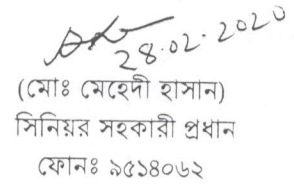 28.02.2020
(মোঃ মেহেদী হাসান)
সিনিয়র সহকারী প্রধান
ফোনঃ ৯৫১৪০৬২